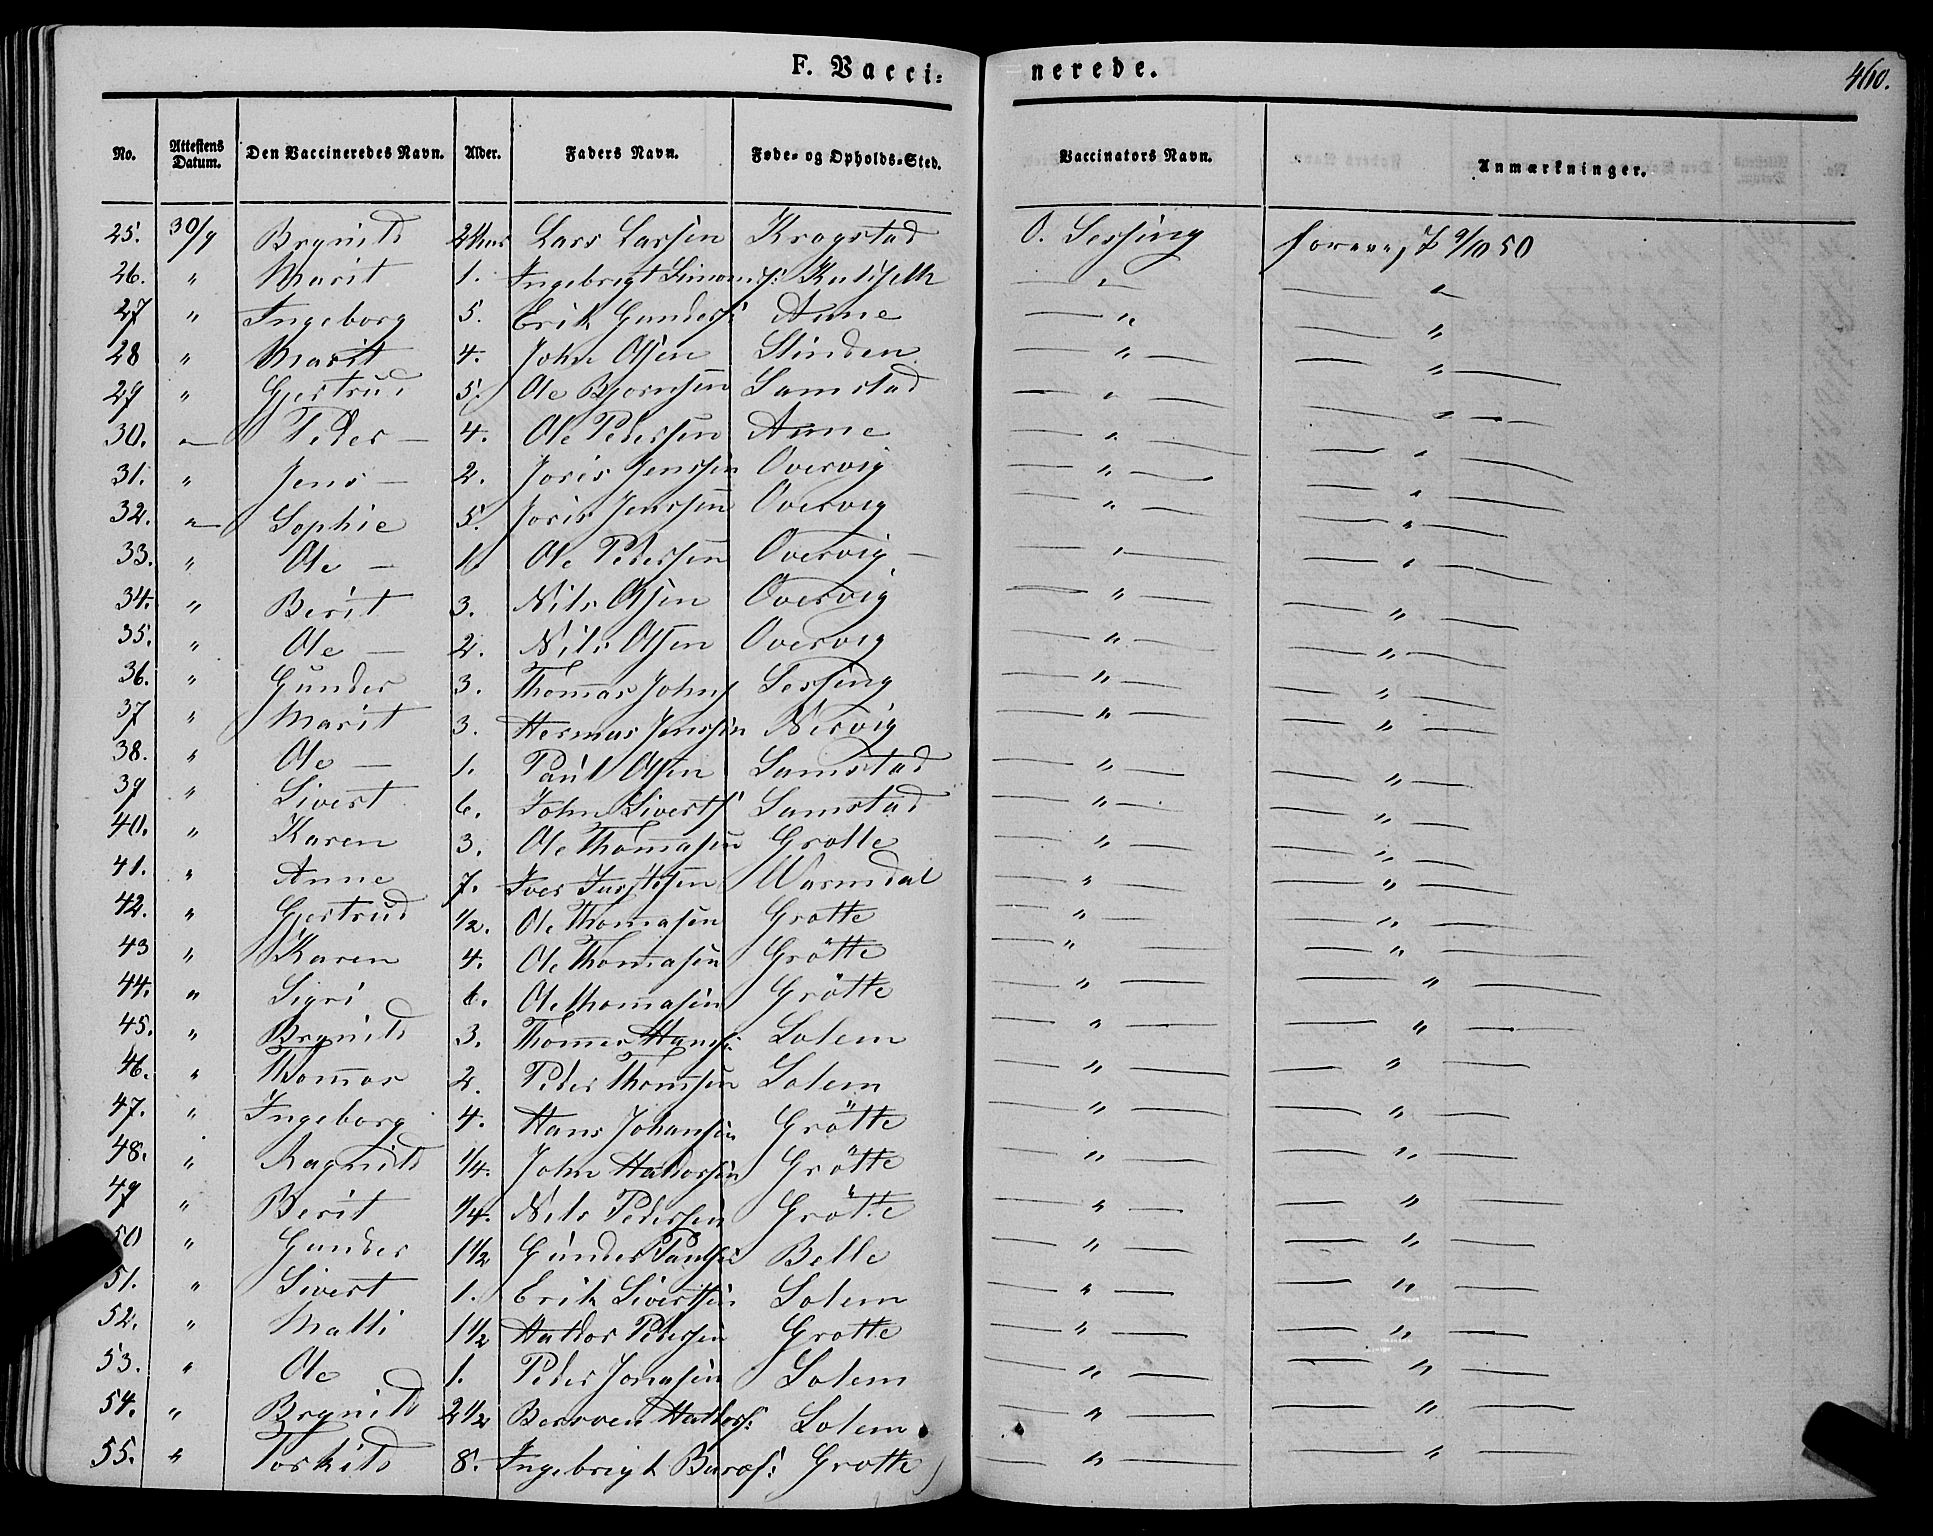 F. Vacci=
nerede.
460.
No. Attestens Datum. Den Vaccineredes Navn. Alder. Faders Navn. Føde- og Opholds-Sted. Vaccinators Navn. Anmærkninger.
25. 30/9 Brynild 2 Lars Larssen Krogstad O. Lessing 9/10 50
26. " Marit 1. Ingebrigt " "
27 " Ingeborg 5. Erik Gunders: Anne " "
28 " Marit 4. John Olsen Slinden " "
29 " Gjertrud 5. Ole Bjørnsen Samstad " "
30. " Peder 4. Ole Pedersen Anne " "
31. " Jens 2. Joris Jenssen Overvig " "
32. " Sophie 5. Joris Jenssen Overvig " "
33. " Ole 1. Ole Pedersen Overvig " "
34. " Berit 3. Nils Olsen Overvig " "
35. " Ole 2. Nils Olsen Overvig " "
36. " Gunder 3. Thomas Johns Lessing " "
37 " Marit 3. Herman Jenssen Nervig " "
38. " Ole 1. Paul Olsen Samstad " "
39 " Sivert 6. John Siverts Samstad " "
40. " Karen 3. Ole Thomasen Grotte " "
41. " Anne 7. Iver Warmdal " "
42. " Gjertrud 1/2. Ole Thomasen Grotte " "
43 " Karen 4. Ole Thomasen Grötte " "
44. " Sigri 6. Ole Thomasen Grötte " "
45. " Brynild 3. Thomas Hans: Solem " "
46. " Thomas 2. Peder Thomsen Solem " "
47. " Ingeborg 4. Hans Johansen Grötte " "
48. " Ragnild 1/4. John Haldorsen Grötte " "
49 " Berit 1/4. Nils Pedersen Grötte " "
50 " Gunder 1 1/2 Gunder Belle " "
51. " Sivert 1. Erik Sivertsen Solem " "
52. " Malli 1 1/2 Haldor Pedersen Grotte " "
53. " Ole 1. Peder Jonasen Solem " "
54. " Brynild 2 1/2 Haldors: Solem " "
55. " Torkild 8. Ingebrigt Grotte " "